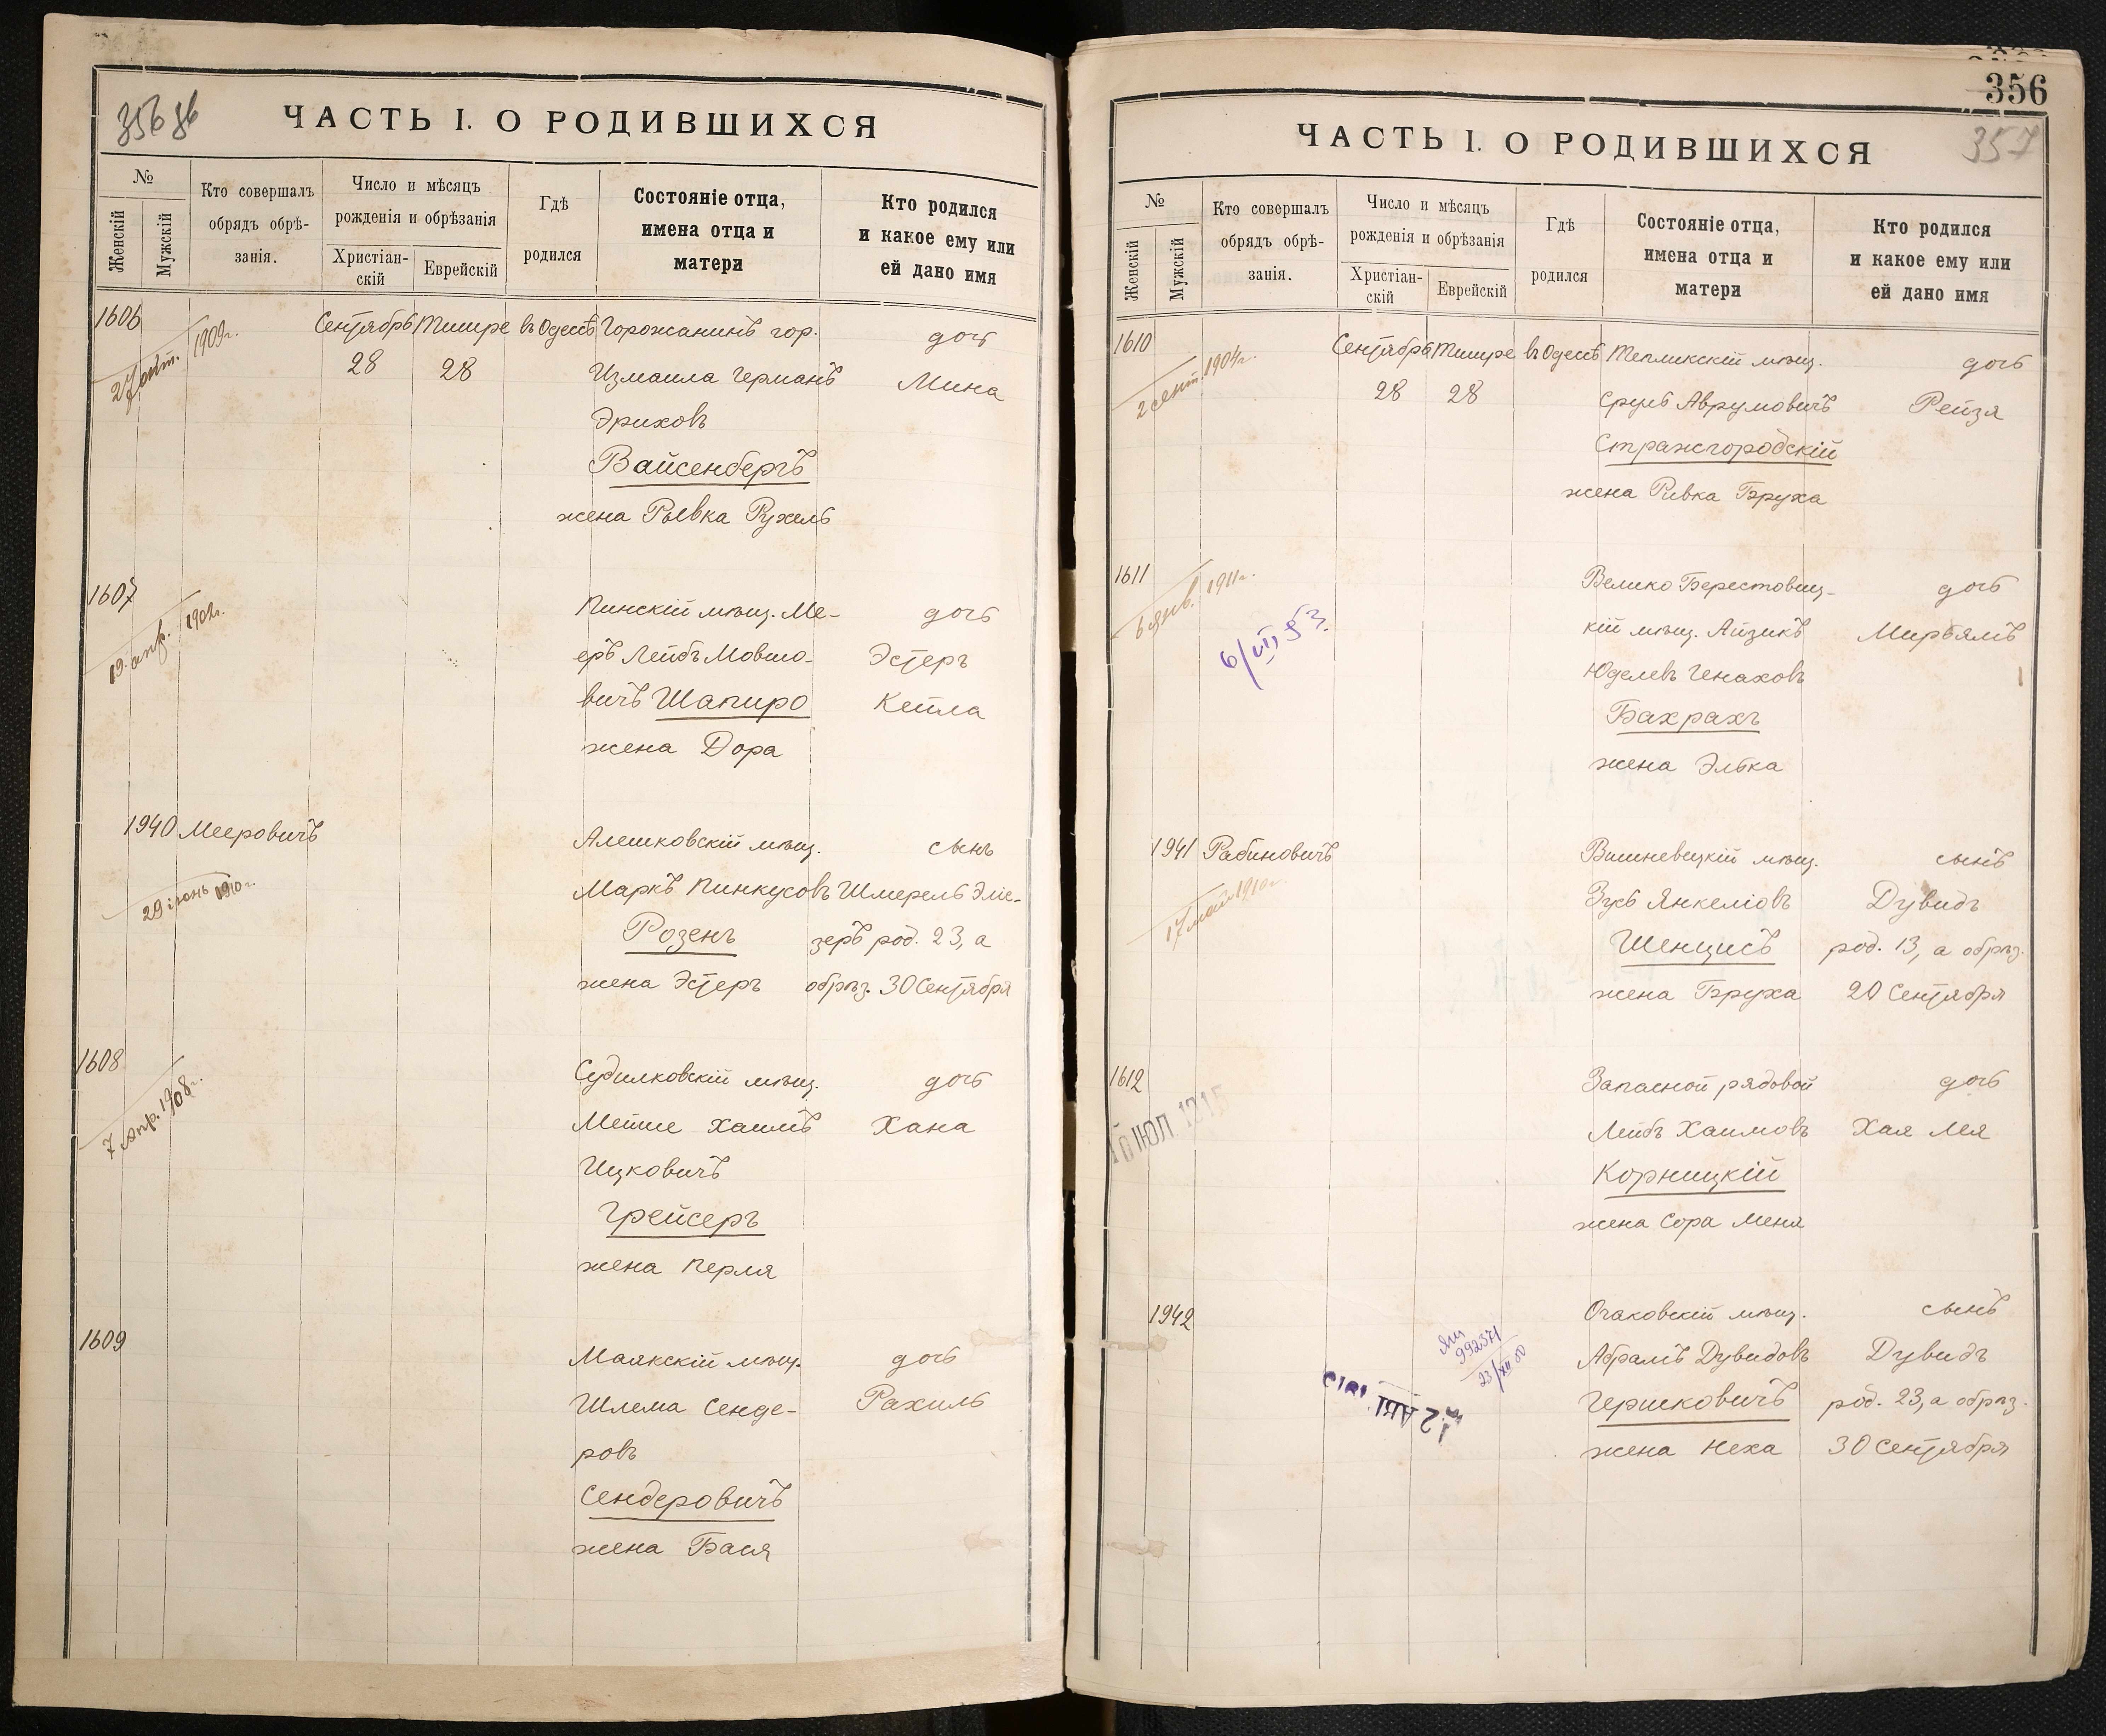 356
ЧАСТЬ I. О РОДИВШИХСЯ
№
Женскій
Мужскій
Кто совершалъ
обрядъ обрѣ-
занія.
Число и мѣсяцъ
рожденія и обрѣзанія
Христіан-
скій
Еврейскій
Гдѣ
родился
Состояніе отца,
имена отца и
матери
Кто родился
и какое ему или
ей дано имя
1606
27 окт. 1909г.
Сентябрь Тишре въ Одессѣ Горожанинъ гор. дочь
28 28 Измаила Германъ Мина
Эриховъ
Вайсенбергъ
жена Рывка Рухель
1607
19 апр. 1902г.
Пинскій мѣщ. Ме- дочь
еръ Лейбъ Мовшо- Эстеръ
вичъ Шапиро Кейла
жена Дора
1940 Мееровичъ
29 іюнь 1910г.
Алешковскій мѣщ. сынъ
Маркъ Пинкусовъ Шмерель Эліе-
Розенъ зеръ род. 23, а
жена Эстеръ обрѣз. 30 Сентября
1608
7 Апр. 1908г.
Судилковскій мѣщ. дочь
Мейше Хаимъ Хана
Ицковичъ
Грейсеръ
жена Перля
1609
Маякскій мѣщ. дочь
Шлема Сенде- Рахиль
ровъ
Сендеровичъ
жена Бася
356
357
ЧАСТЬ I. О РОДИВШИХСЯ
№
Женскій
Мужскій
Кто совершалъ
обрядъ обрѣ-
занія.
Число и мѣсяцъ
рожденія и обрѣзанія
Христіан-
скій
Еврейскій
Гдѣ
родился
Состояніе отца,
имена отца и
матери
Кто родился
и какое ему или
ей дано имя
1610
2 сент. 1904г.
Сентябрь Тишре въ Одессѣ Тепликскій мѣщ. дочь
28 28 Сруль Аврумовичъ Рейзя
Стражгородскій
жена Ривка Бруха
1611
6 янв. 1911г.
6/VII 53.
Велико Берестовиц- дочь
кій мѣщ. Айзикъ Мирьямъ
Юделевъ Генаховъ
Бахрахъ
жена Элька
1941 Рабиновичъ
17 май 1910г.
Вишневецкій мѣщ. сынъ
Зусь Янкеліовъ Дувидъ
Шенцисъ род. 13, а обрѣз.
жена Бруха 20 Сентября
1612
10 ІЮЛ. 1215
Запасной рядовой дочь
Лейбъ Хаимовъ Хая Лея
Корницкій
жена Сора Меня
1942
992371
23/XII 50
Очаковскій мѣщ. сынъ
Абрамъ Дувидовъ Дувидъ
Гершковичъ род. 23, а обрѣз.
жена Неха 30 Сентября